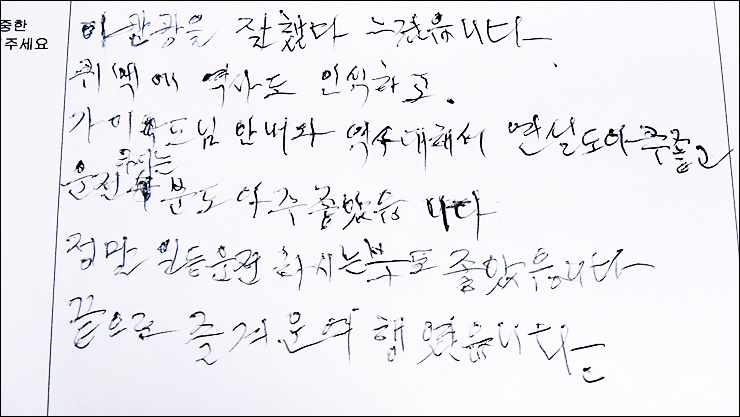 중한
주세요
관광을 잘했다 느꼈읍니다.
역사도 인식하고.
가이드님 안내와 역사 대해서 연설도 아주 좋고
운전 분도 아주 좋았읍니다
정말 일등 운전 하시는 분도 좋았읍니다
끝으로 즐거운 여행 였읍니다